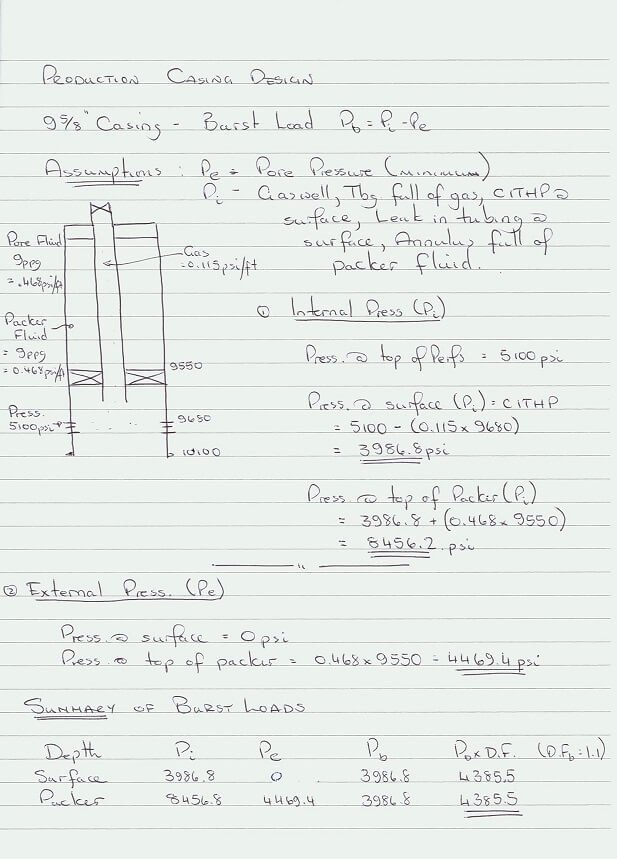 PRODUCTION CASING DESIGN
9 5/8" Casing - Burst Load Pb = Pi - Pe
Assumptions : Pe = Pore Pressure (minimum)
Pi - Gaswell, Tbg full of gas, CITHP @
surface, Leak in tubing @
surface, Annulus full of
packer fluid.
Pore Fluid
9ppg
= .468psi/ft
Gas
= 0.115psi/ft
Packer
Fluid
= 9ppg
= 0.468psi/ft
9550
Press.
5100psi
9650
10100
① Internal Press (Pi)
Press. @ top of Perfs = 5100psi
Press. @ surface (Pi) = CITHP
= 5100 - (0.115 x 9680)
= 3986.8psi
Press @ top of Packer (Pi)
= 3986.8 + (0.468 x 9550)
= 8456.2 psi
"
② External Press. (Pe)
Press. @ surface = 0psi
Press. @ top of packer = 0.468 x 9550 = 4469.4 psi
SUMMARY OF BURST LOADS
Depth Pi Pe Pb Pb x D.F. (D.Fb = 1.1)
Surface 3986.8 0 3986.8 4385.5
Packer 8456.8 4469.4 3986.8 4385.5